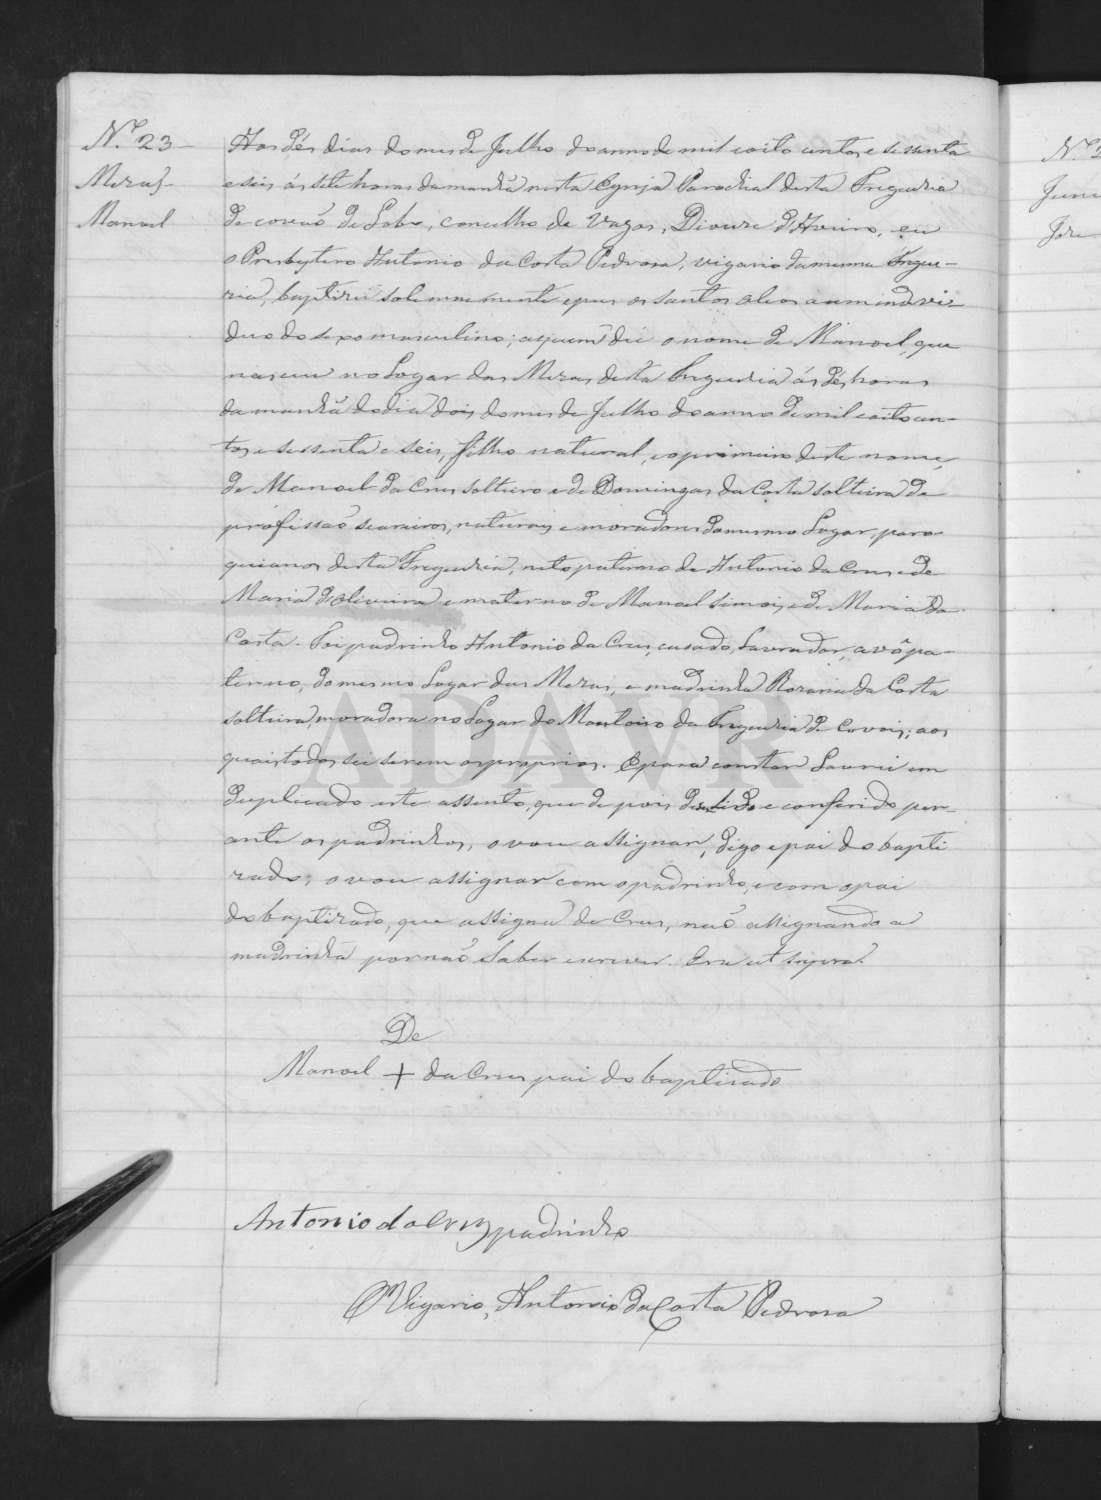 Nº 23
Mezas
Manoel
Aos dés dias do mes de Julho do anno de mil oito centos e sessenta
e seis ás sete horas da manhã nesta Egreja Parochial desta Freguezia
de Covão do Lobo, concelho de Vagos, Diocese d'Aveiro, eu
o Presbytero Antonio da Costa Pedroza, vigario da mesma Fregue-
zia, baptizei solemnemente e pus os santos oleos a um indevi-
duo do sexo masculino; a quem dei o nome de Manoel, que
nasceu no Logar das Mezas desta Freguezia ás dés horas
da manhã do dia dois do mes de Julho do anno de mil oito cen-
tos e sessenta e seis, filho natural, e o primeiro deste nome,
de Manoel da Crus solteiro e de Domingas da Costa solteira de
profissão seareiros, naturaes e moradores do mesmo Logar, paro-
quianos desta Freguezia, neto paterno de Antonio da Crus e de
Maria d'Oliveira e materno de Manoel Simois, e de Maria da
Costa. Foi padrinho Antonio da Crus, casado, Lavrador, avô pa-
terno, do mesmo Logar das Mezas, e madrinha Rozaria da Costa
solteira, moradora no Logar do Montoiro da Freguezia de Covois; aos
quais todos sei serem os proprios. E para constar Lavrei em
duplicado este assento, que de pois de lido e conferido per-
ante os padrinhos, o vou assignar, digo e pai do bapti
zado; o vou assignar com o padrinho, e com o pai
do baptizado, que assigna de Crus, não assignando a
madrinha por não saber escrever. Era ut supra.
De
Manoel + da Crus pai do baptizado
Antonio da Cruz padrinho
O Vigario, Antonio da Costa Pedroza
Nº 2
ADAVR